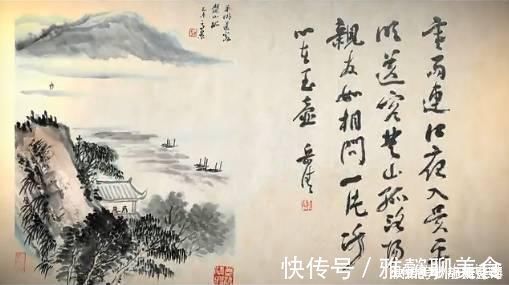 寒雨連江夜入吳平
明送客楚山孤洛陽
親友如相問一片冰
心在玉壺
快传号 / 雅懿聊美食